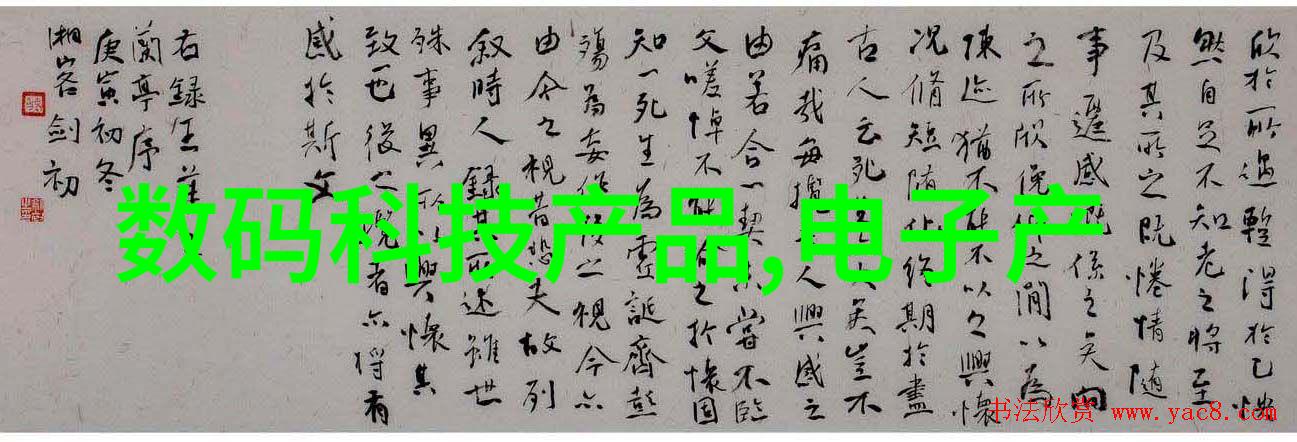 欣於所遇暫得於己快
然自足不知老之將至
及其所之既惓情隨
事遷感慨係之矣向
之所欣俛仰之閒以為
陳迹猶不能不以之興懷
況脩短隨化終期於盡
古人云死生大矣豈不
痛哉每攬人興感之
由若合一契未嘗不臨
文嗟悼不能喻之於懷固
知一死生為虛誕齊彭
殤為妄作後之視今亦
由今之視昔悲夫故列
叙時人錄其所述雖世
殊事異所以興懷其
致一也後之覽者亦將有
感於斯文
右錄王羲
蘭亭序
庚寅初冬
湘客劍初
数码科技产品,电子产
书法欣赏 www.yac8.com